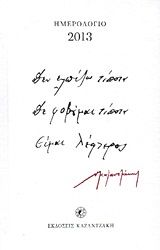 ΗΜΕΡΟΛΟΓΙΟ
2013
Δὲν ἐλπίζω τίποτα
Δὲ φοβᾶμαι τίποτα
Εἶμαι λέφτερος
ΕΚΔΟΣΕΙΣ ΚΑΖΑΝΤΖΑΚΗ